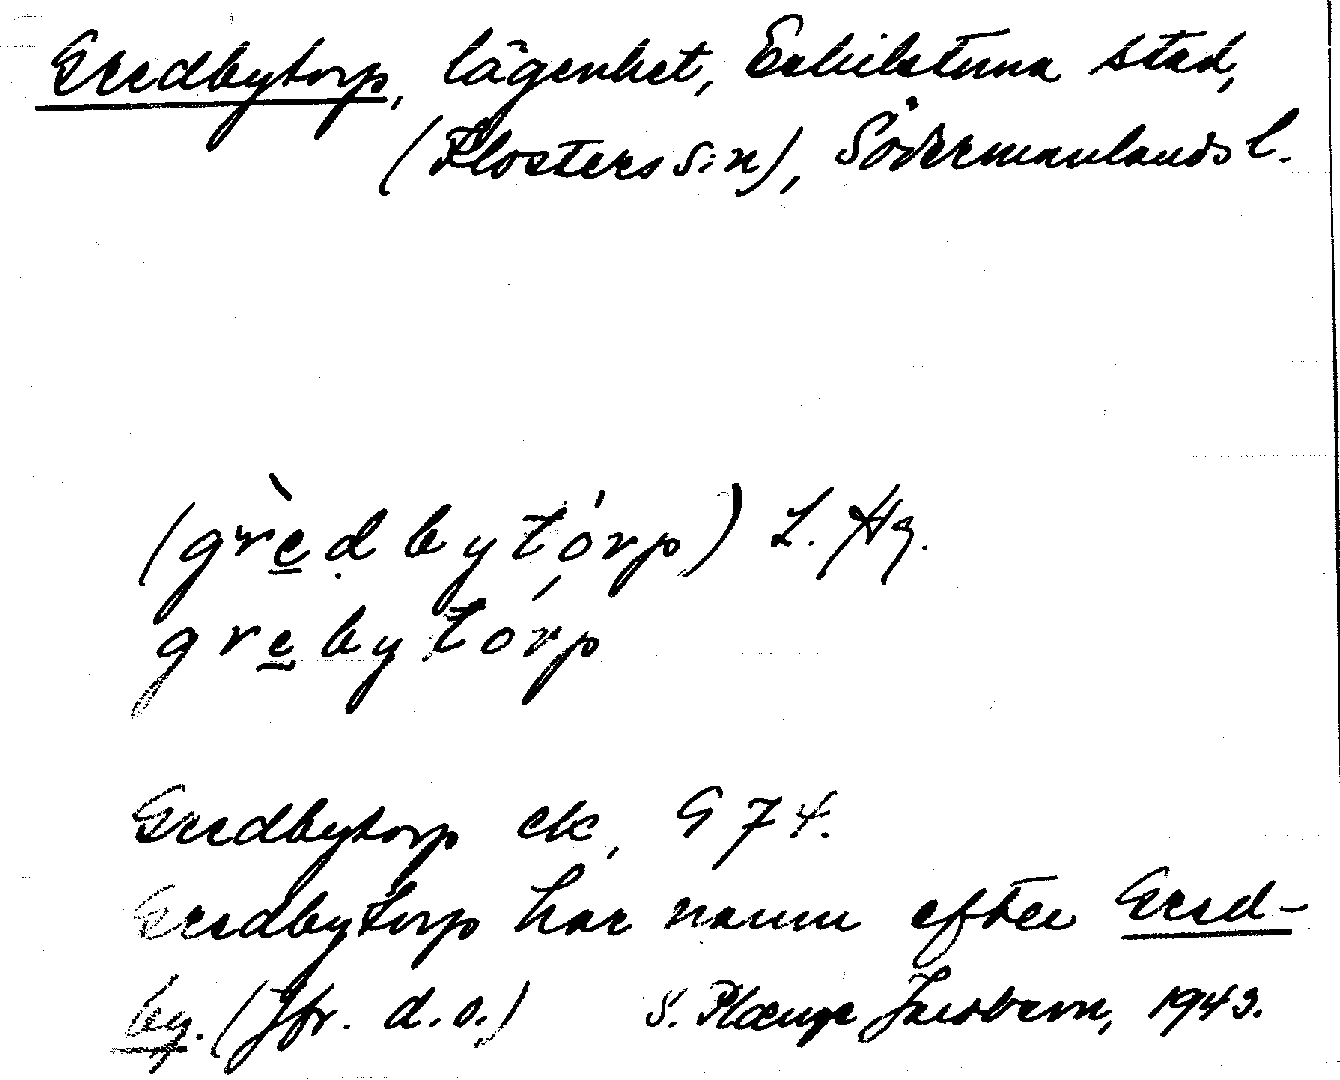 Gredbytorp, lägenhet, Eskilstuna stad,
(Klosters s:n), Södermanlands l.
(grè̱dbytórp) L. Hg.
gre̱bytórp
Gredbytorp ek, G 74.
Gredbytorp har namn efter Gred-
by. (Jfr. d.o.) S. Plænge Jacobson, 1943.